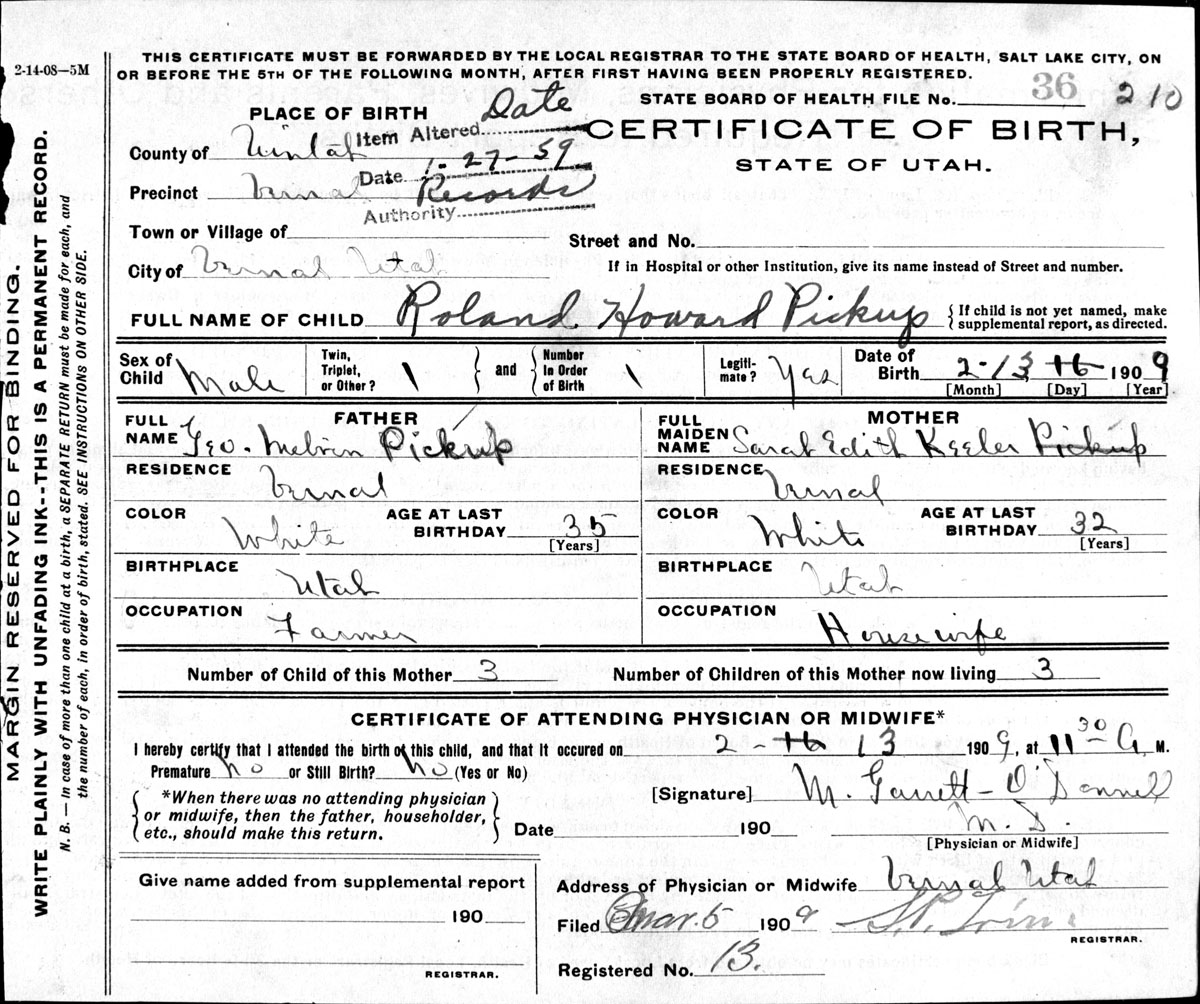 2-14-08—5M
THIS CERTIFICATE MUST BE FORWARDED BY THE LOCAL REGISTRAR TO THE STATE BOARD OF HEALTH, SALT LAKE CITY, ON
OR BEFORE THE 5TH OF THE FOLLOWING MONTH, AFTER FIRST HAVING BEEN PROPERLY REGISTERED.
STATE BOARD OF HEALTH FILE No. 36 210
PLACE OF BIRTH
Item Altered Date
CERTIFICATE OF BIRTH,
STATE OF UTAH.
County of Uintah
Date 1-27-59
Precinct Vernal
Authority Records
Town or Village of
Street and No.
City of Vernal Utah
If in Hospital or other Institution, give its name instead of Street and number.
FULL NAME OF CHILD Roland Howard Pickup { If child is not yet named, make
supplemental report, as directed.
Sex of Child Male
Twin, Triplet, or Other? 1 } and { Number in Order of Birth 1
Legitimate? Yes
Date of Birth 2-13 16 1909
[Month] [Day] [Year]
FATHER
FULL NAME Geo. Melvin Pickup
RESIDENCE Vernal
COLOR White AGE AT LAST BIRTHDAY 35 [Years]
BIRTHPLACE Utah
OCCUPATION Farmer
MOTHER
FULL MAIDEN NAME Sarah Edith Keeler Pickup
RESIDENCE Vernal
COLOR White AGE AT LAST BIRTHDAY 32 [Years]
BIRTHPLACE Utah
OCCUPATION Housewife
Number of Child of this Mother 3 Number of Children of this Mother now living 3
CERTIFICATE OF ATTENDING PHYSICIAN OR MIDWIFE*
I hereby certify that I attended the birth of this child, and that it occured on 2-16 13 1909, at 11 30 A M.
Premature No or Still Birth? No (Yes or No)
[Signature] M. Garrett-O'Donnell
{ *When there was no attending physician
or midwife, then the father, householder,
etc., should make this return. }
Date 190 M. D.
[Physician or Midwife]
Give name added from supplemental report
190
REGISTRAR.
Address of Physician or Midwife Vernal Utah
Filed Mar. 5 1909
REGISTRAR.
Registered No. 13.
MARGIN RESERVED FOR BINDING.
WRITE PLAINLY WITH UNFADING INK--THIS IS A PERMANENT RECORD.
N. B. — In case of more than one child at a birth, a SEPARATE RETURN must be made for each, and
the number of each, in order of birth, stated. SEE INSTRUCTIONS ON OTHER SIDE.